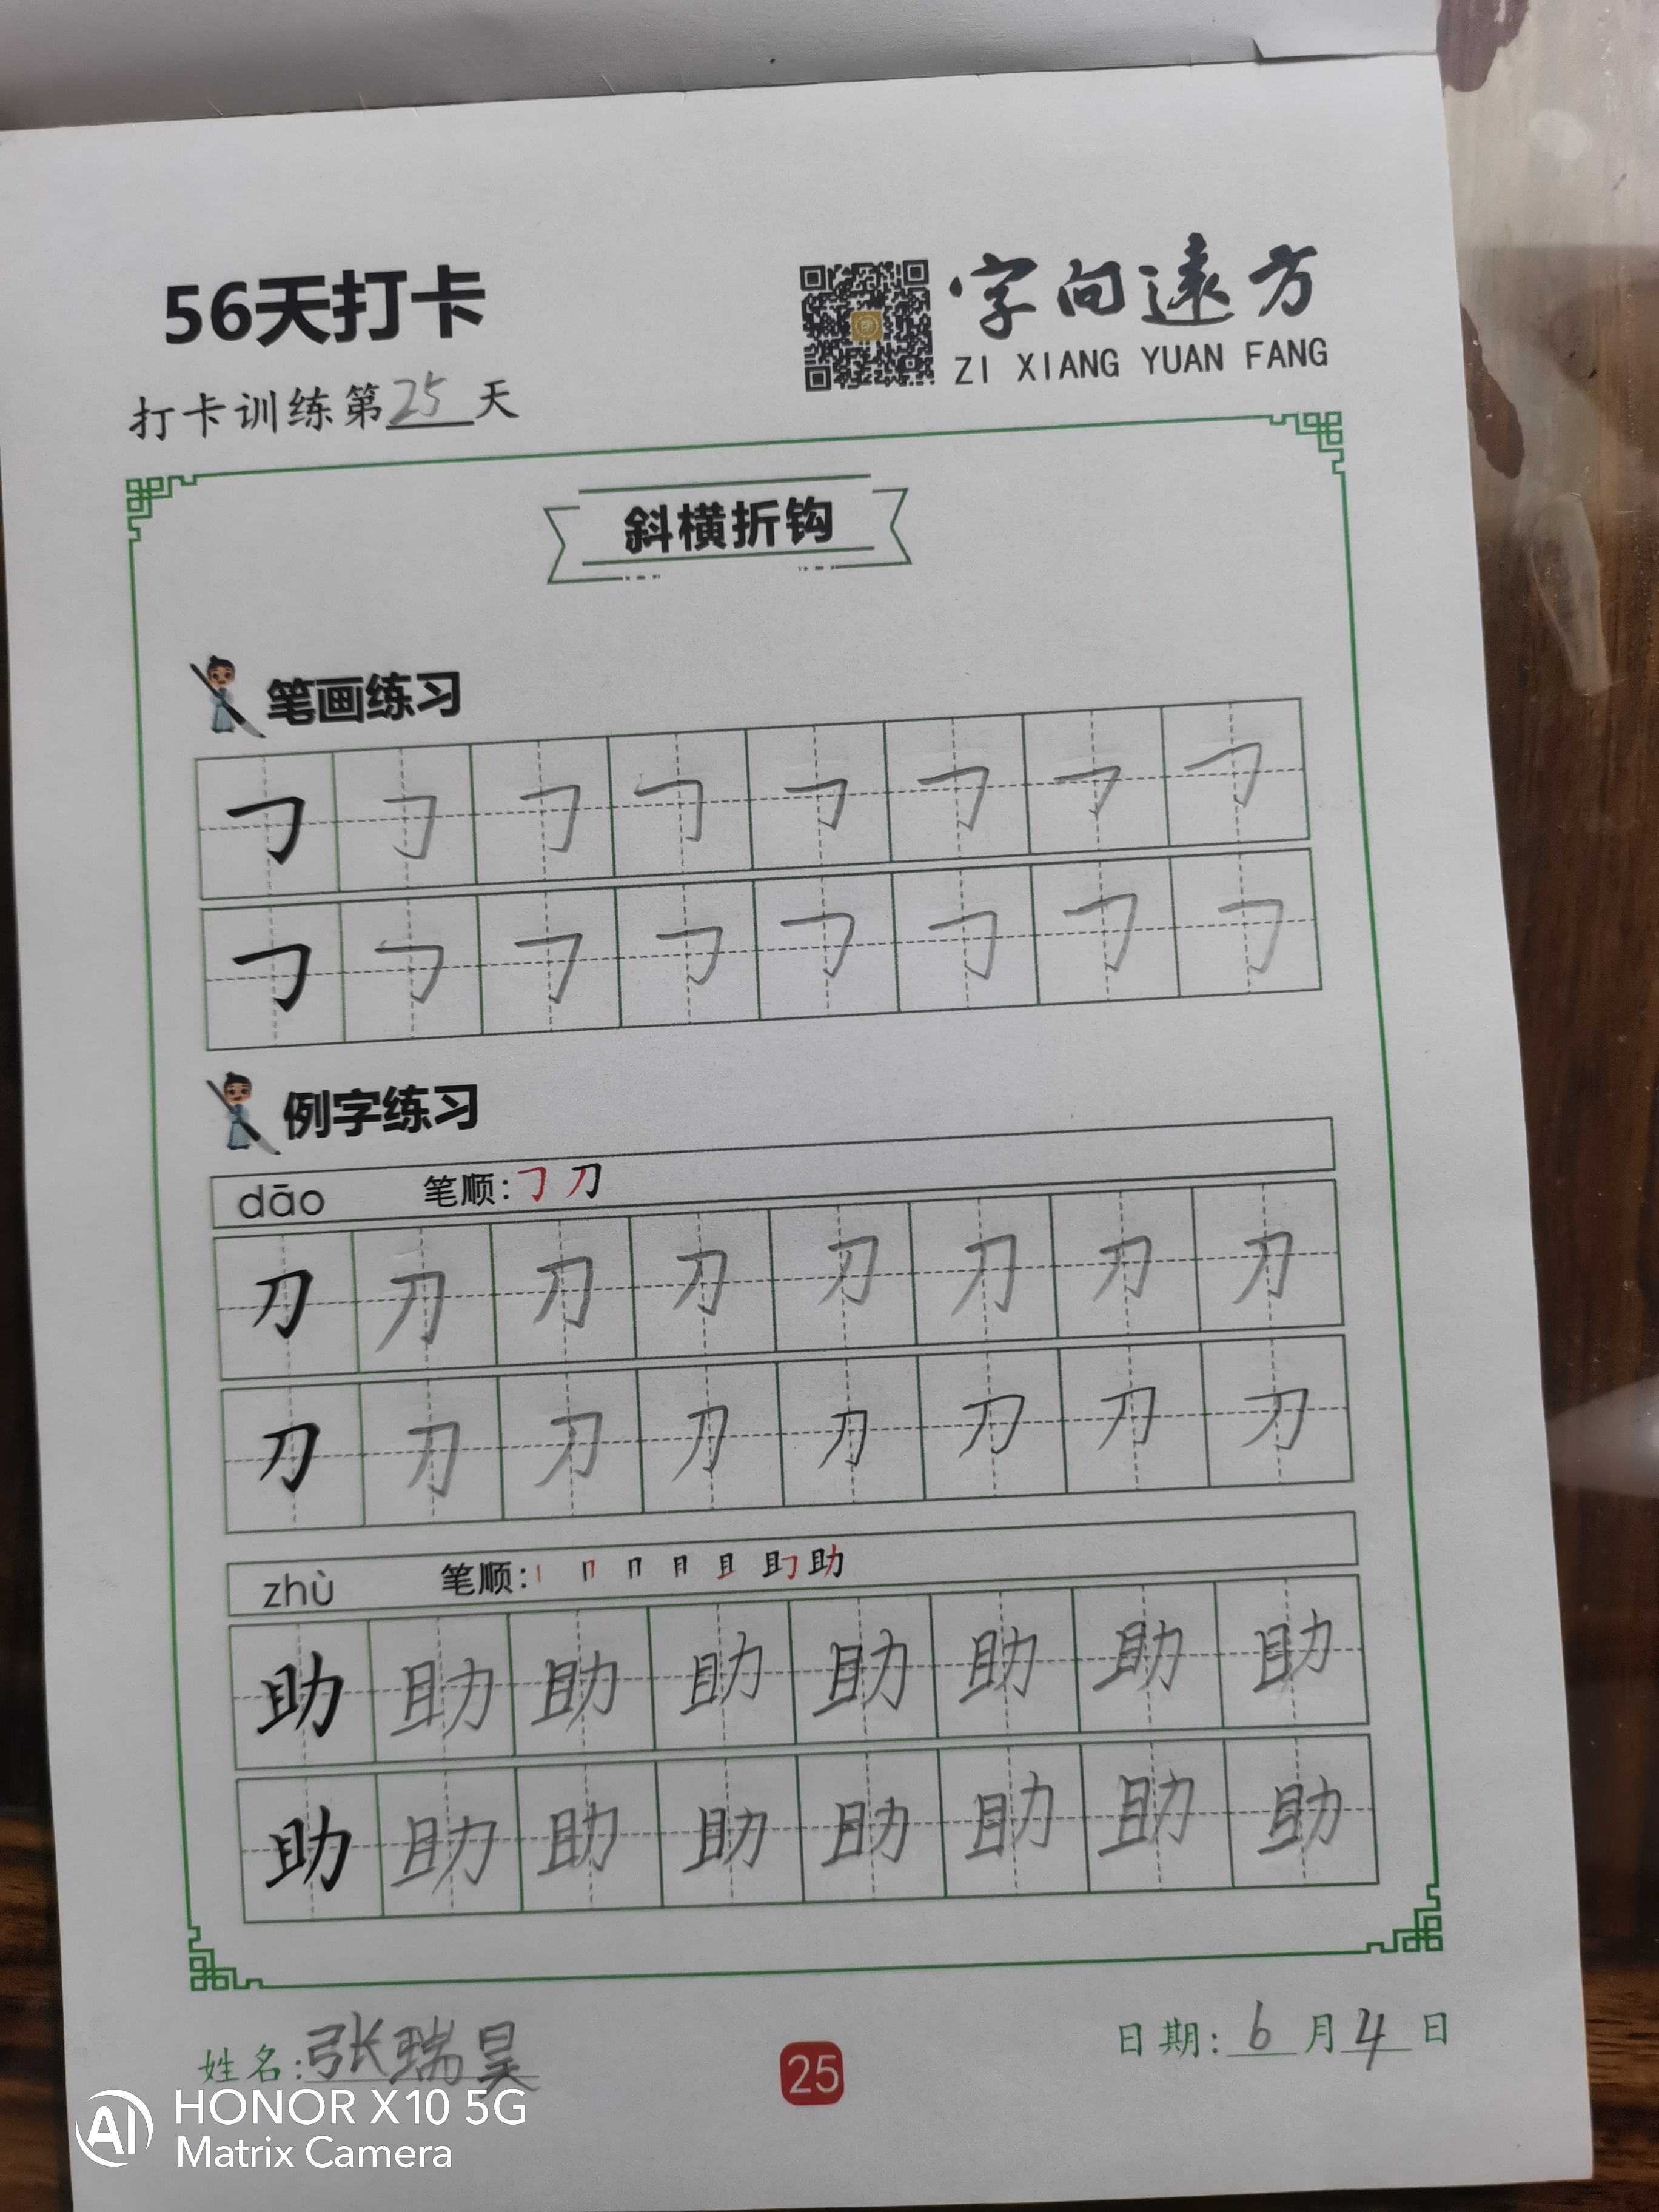 56天打卡
字向遠方
ZI XIANG YUAN FANG
打卡训练第25天
斜横折钩
笔画练习
㇆ ㇆ ㇆ ㇆ ㇆ ㇆ ㇆ ㇆
㇆ ㇆ ㇆ ㇆ ㇆ ㇆ ㇆ ㇆
例字练习
dāo 笔顺:㇆ 刀
刀 刀 刀 刀 刀 刀 刀 刀
刀 刀 刀 刀 刀 刀 刀 刀
zhù 笔顺:
助 助 助 助 助 助 助 助
助 助 助 助 助 助 助 助
姓名:张瑞昊
25
日期:6月4日
AI HONOR X10 5G
Matrix Camera